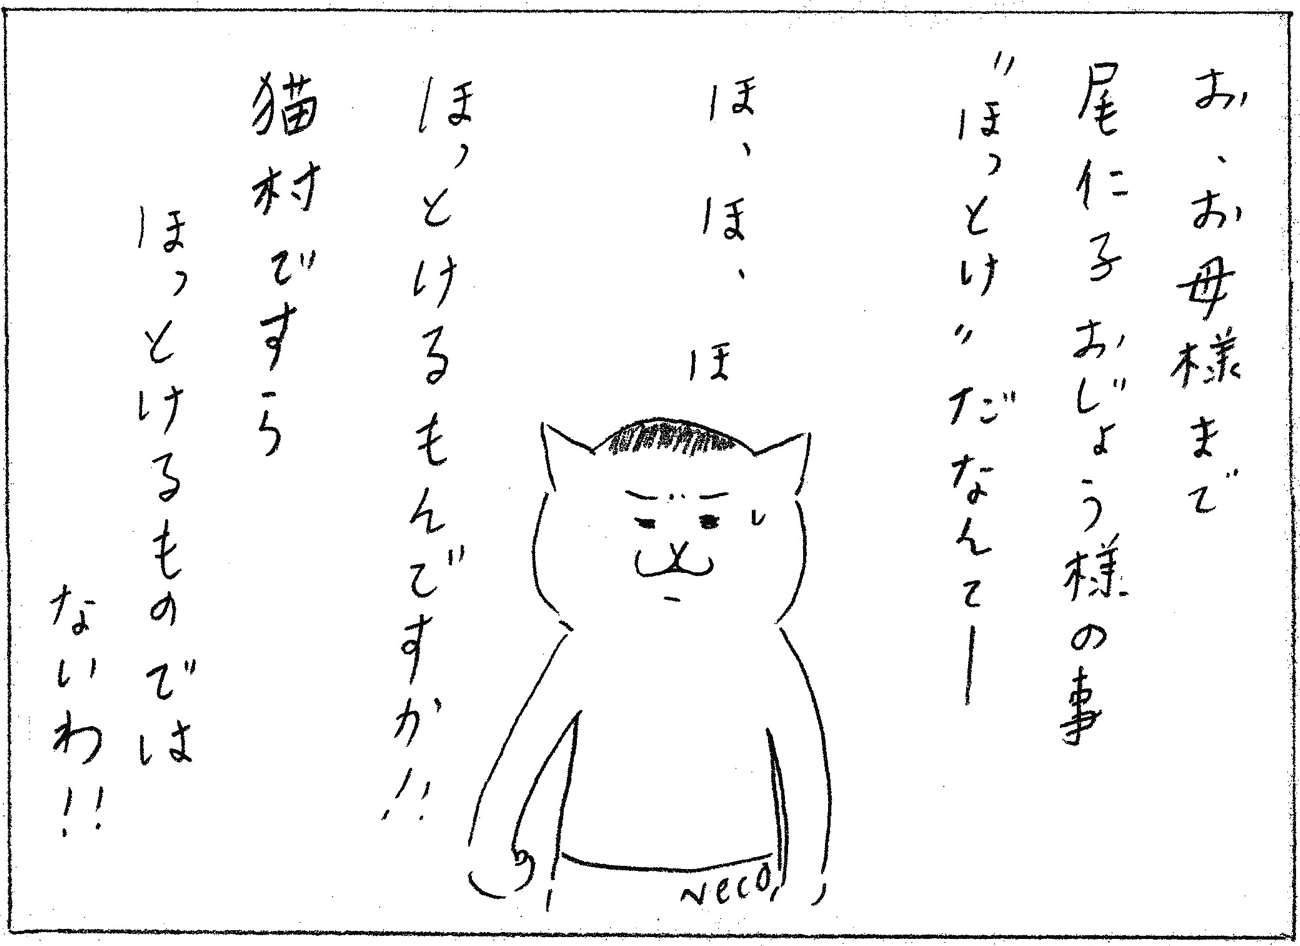 お、お母様まで
尾仁子おじょう様の事
〝ほっとけ〟だなんてー
ほ、ほ、ほ
ほっとけるもんですか!!
猫村ですら
ほっとけるものでは
ないわ!!
Neco